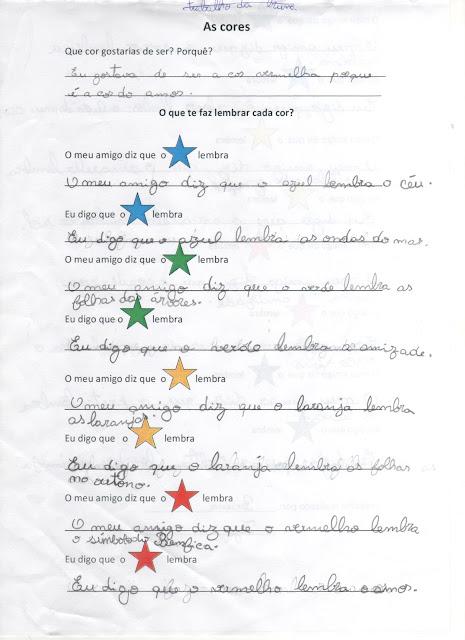 trabalho da
As cores
Que cor gostarias de ser? Porquê?
Eu gostava de ser a cor vermelha porque
é a cor do amor.
O que te faz lembrar cada cor?
O meu amigo diz que o lembra
O meu amigo diz que o azul lembra o céu.
Eu digo que o lembra
Eu digo que o azul lembra as ondas do mar.
O meu amigo diz que o lembra
O meu amigo diz que o verde lembra as
folhas das árvores.
Eu digo que o lembra
Eu digo que o verde lembra a amizade.
O meu amigo diz que o lembra
O meu amigo diz que o laranja lembra
as laranjas.
Eu digo que o lembra
Eu digo que o laranja lembra as folhas
no outono.
O meu amigo diz que o lembra
O meu amigo diz que o vermelho lembra
o símbolo do Benfica.
Eu digo que o lembra
Eu digo que o vermelho lembra o amor.